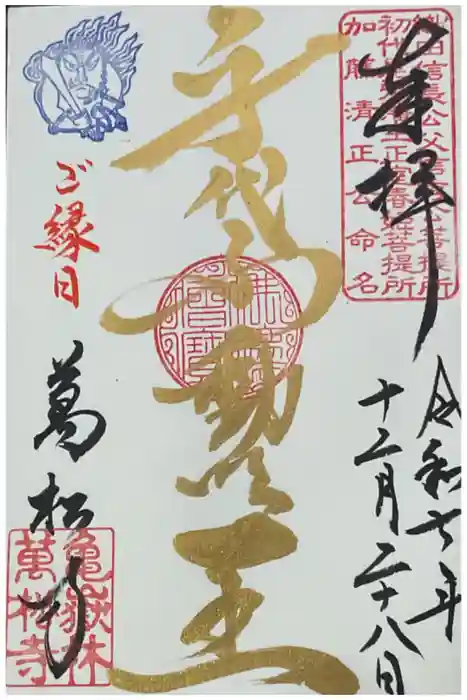 奉拝
織田信長公父信秀公菩提所
初代尾張藩主正室春姫菩提所
加藤清正公命名
令和七年
十二月二十八日
身代不動明王
ご縁日
萬松寺
亀嶽林
萬松寺